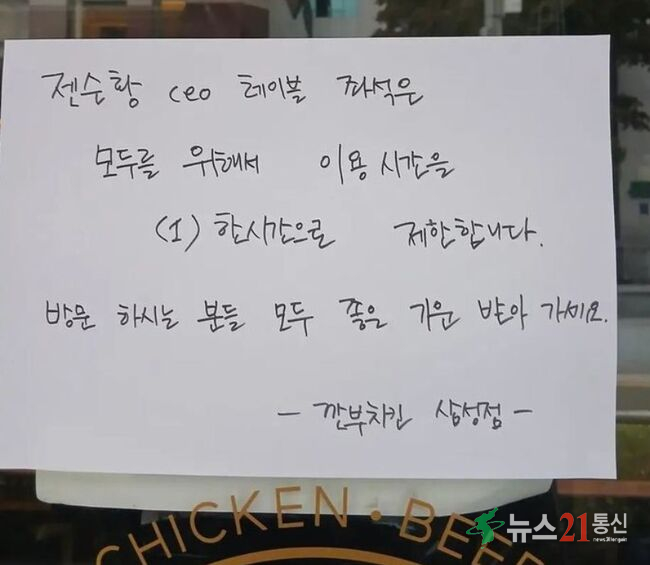 젠슨황 ceo 테이블 좌석은
모두를 위해서 이용 시간을
(1) 한시간으로 제한합니다.
방문 하시는 분들 모두 좋은 기운 받아 가세요.
- 깐부치킨 삼성점 -
CHICKEN · BEER
뉴스21통신